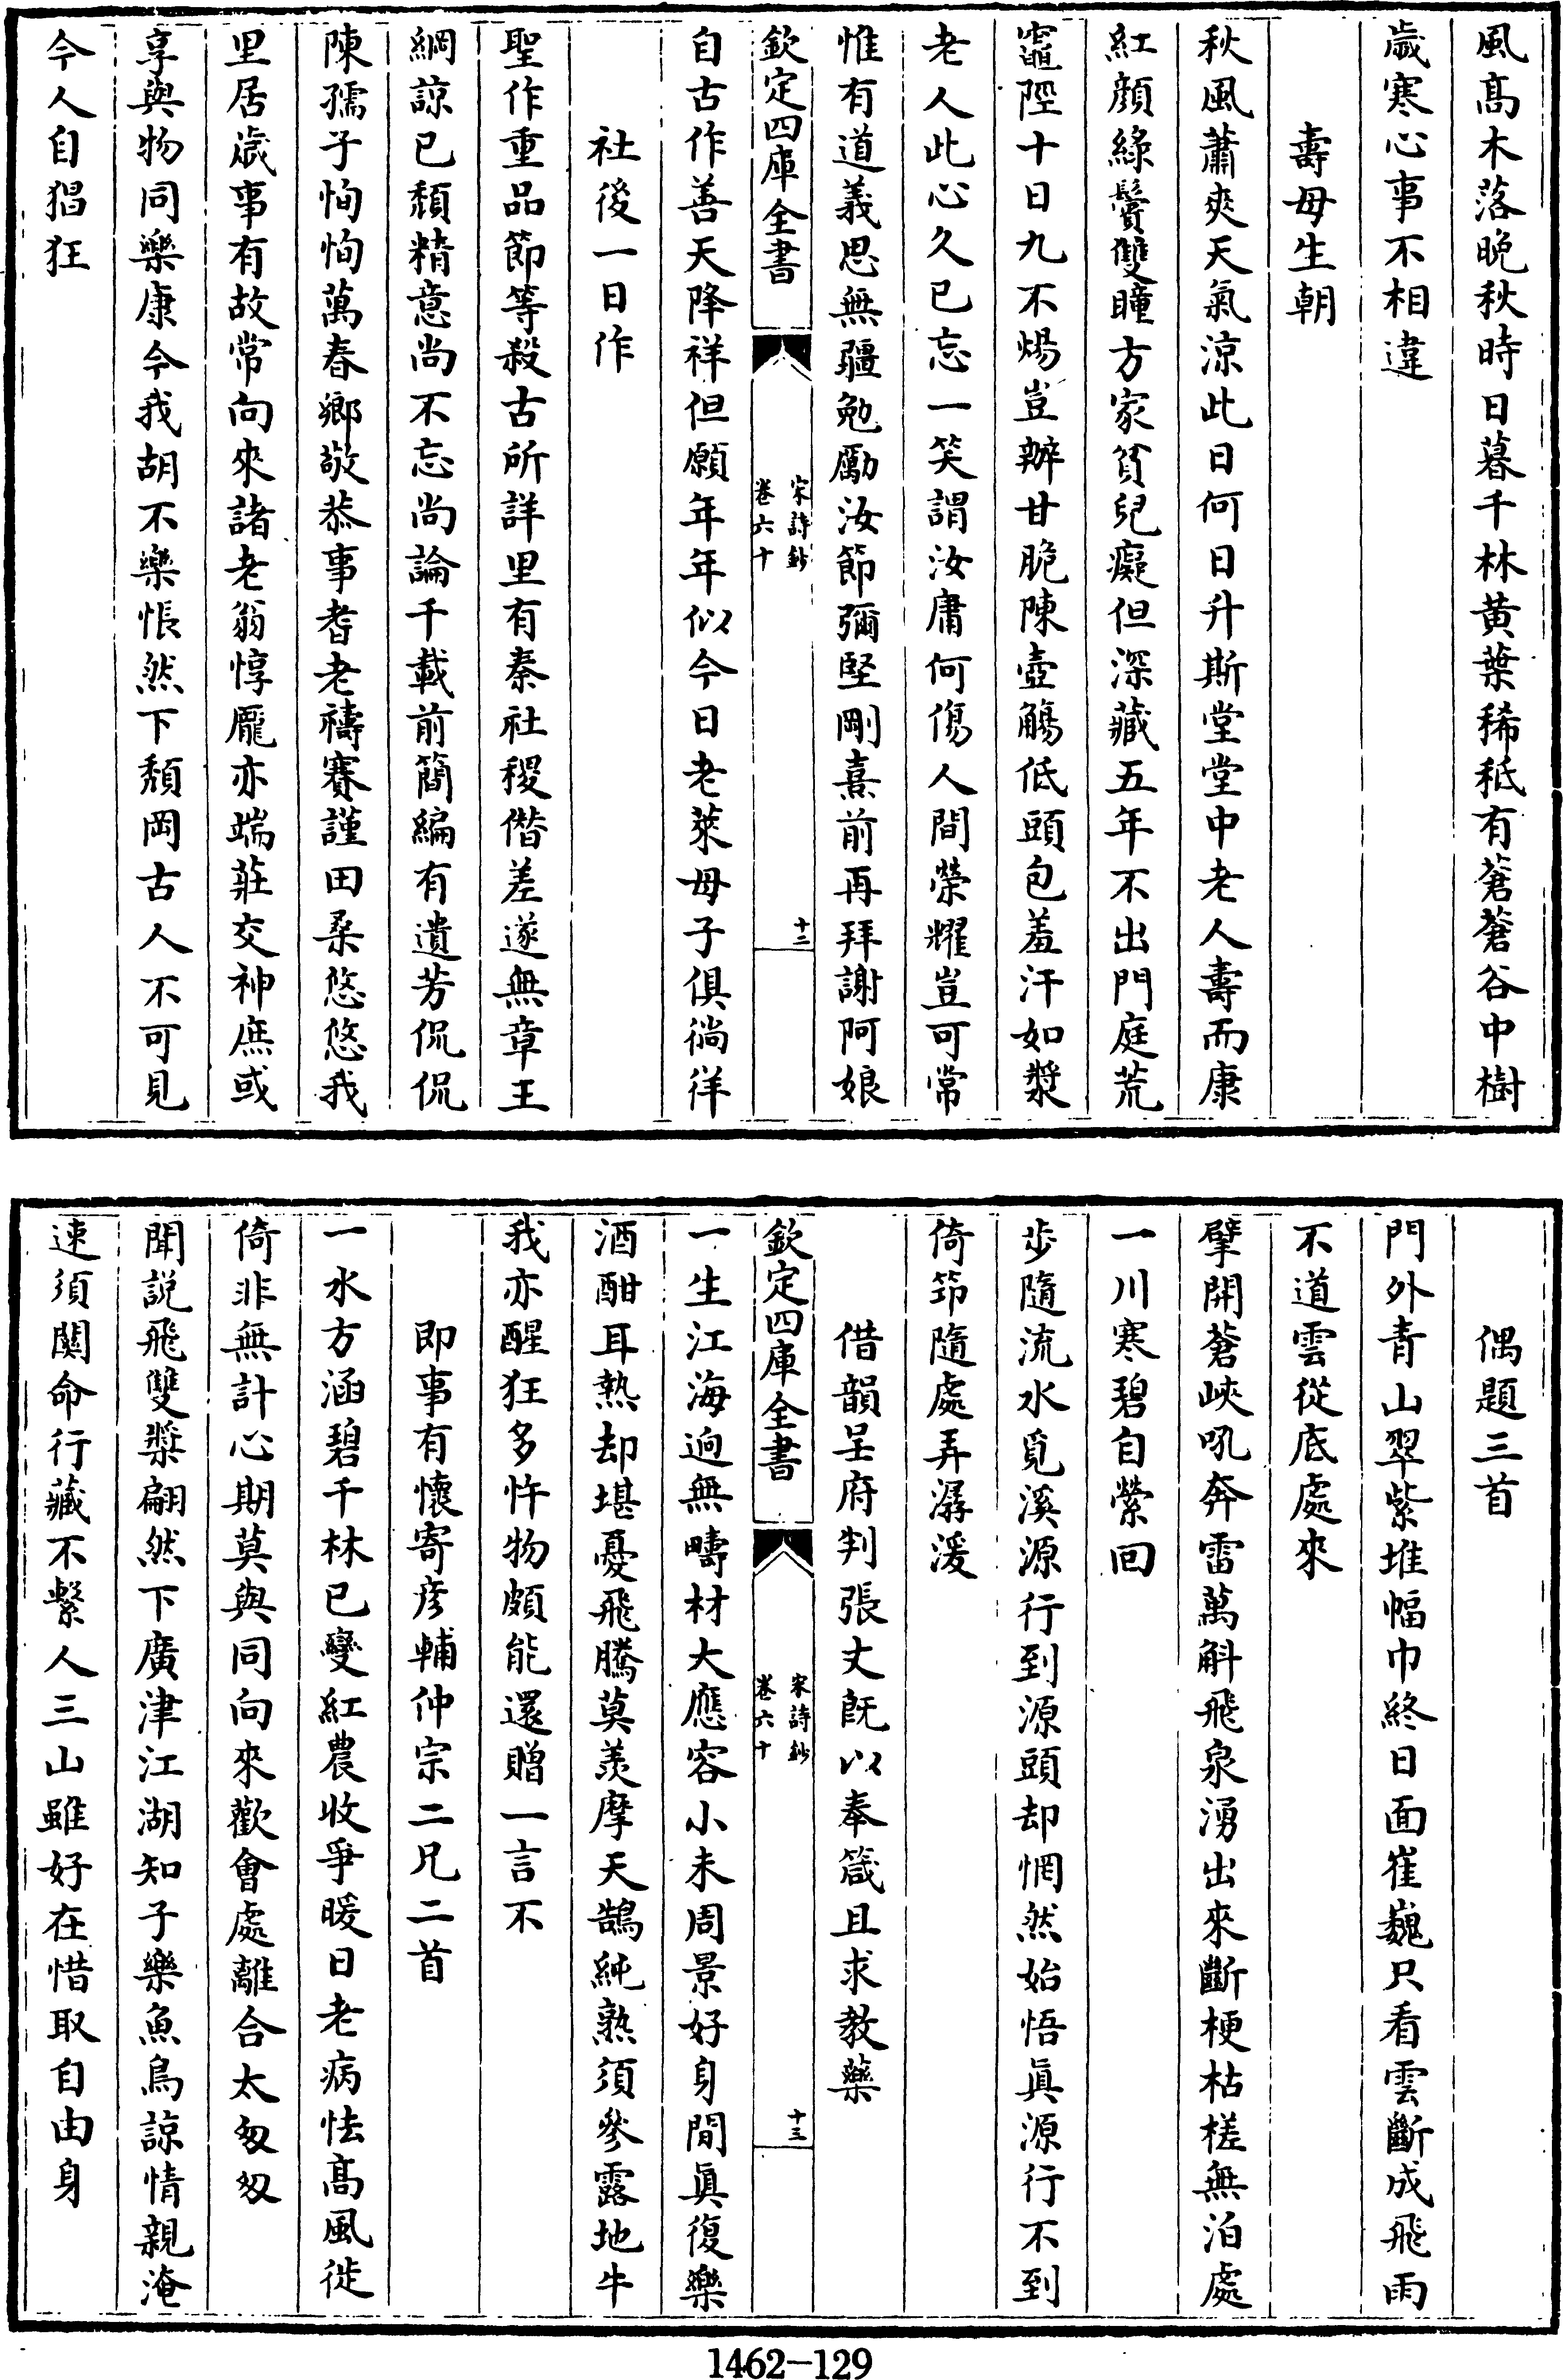 風髙木落晚秋時日暮千林黄葉稀秪有蒼蒼谷中樹
歲寒心事不相違
壽母生朝
秋風蕭爽天氣涼此日何日升斯堂堂中老人壽而康
紅顔綠鬢雙瞳方家貧兒癡但深藏五年不出門庭荒
竈陘十日九不煬豈辦甘脆陳壺觴低頭包羞汗如漿
老人此心久已忘一笑謂汝庸何傷人間榮耀豈可常
惟有道義思無疆勉勵汝節彌堅剛熹前再拜謝阿娘
欽定四庫全書
宋詩鈔
卷六十
十二
自古作善天降祥但願年年似今日老萊母子俱徜徉
社後一日作
聖作重品節等殺古所詳里有秦社稷僭差遂無章王
綱諒已頹精意尚不忘尚論千載前簡編有遺芳侃侃
陳孺子恂恂萬春鄉敬恭事耆老禱賽謹田桑悠悠我
里居歲事有故常向來諸老翁惇龎亦端莊交神庶或
享與物同樂康今我胡不樂悵然下頹岡古人不可見
今人自猖狂
偶題三首
門外青山翠紫堆幅巾終日面崔巍只看雲斷成飛雨
不道雲從底處來
擘開蒼峽吼奔雷萬斛飛泉湧出來斷梗枯槎無泊處
一川寒碧自縈回
步隨流水覓溪源行到源頭却惘然始悟眞源行不到
倚笻隨處弄潺湲
借韻呈府判張丈旣以奉箴且求教藥
欽定四庫全書
宋詩鈔
卷六十
十三
一生江海逈無疇材大應容小未周景好身閒眞復樂
酒酣耳熱却堪憂飛騰莫羨摩天鵠純熟須參露地牛
我亦醒狂多忤物頗能還贈一言不
即事有懷寄彦輔仲宗二兄二首
一水方涵碧千林已變紅農收爭暖日老病怯髙風徙
倚非無計心期莫與同向來歡會處離合太匆匆
聞説飛雙槳翩然下廣津江湖知子樂魚鳥諒情親淹
速須關命行藏不繫人三山雖好在惜取自由身
1462—129